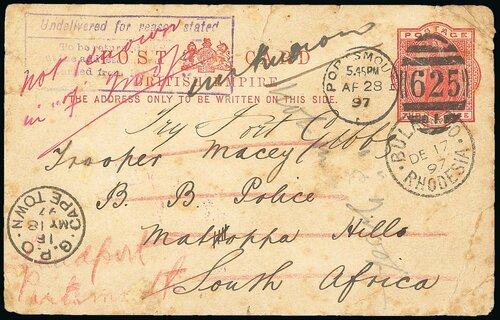 Undelivered for reason stated
To be return
POST CARD
BRITISH EMPIRE
THE ADDRESS ONLY TO BE WRITTEN ON THIS SIDE.
Not known
in "J" Troop
unknown
POSTAGE
PORTSMOU
5.45PM
AP 28
97
625
BULAWAYO
DE 17
97
RHODESIA
Try Fort Gibbs
Trooper Macey
B B Police
Matoppa Hills
South Africa
G.P.O.
CAPE TOWN
MY 18
97